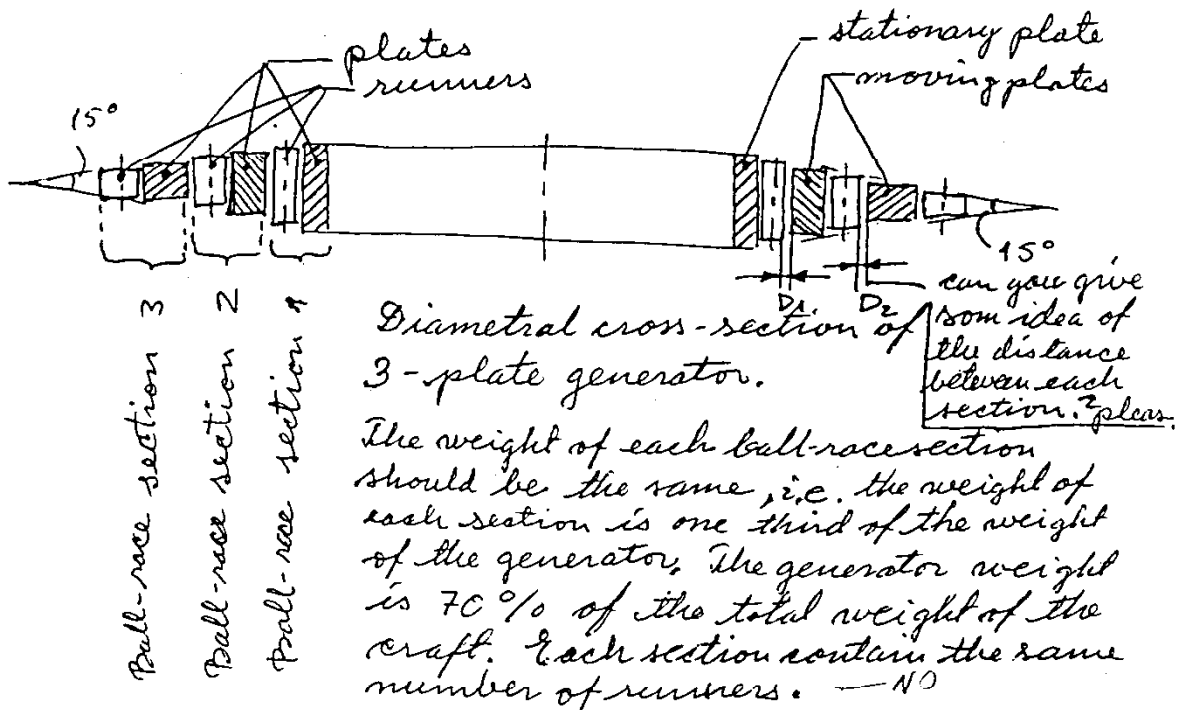 plates
runners
stationary plate
moving plates
15°
15°
D1
D2
can you give
som idea of
the distance
between each
section.? pleas.
Ball-race section 3
Ball-race section 2
Ball-race section 1
Diametral cross-section of
3-plate generator.
The weight of each ball-race section
should be the same, i.e. the weight of
each section is one third of the weight
of the generator. The generator weight
is 70% of the total weight of the
craft. Each section contain the same
number of runners. — NO